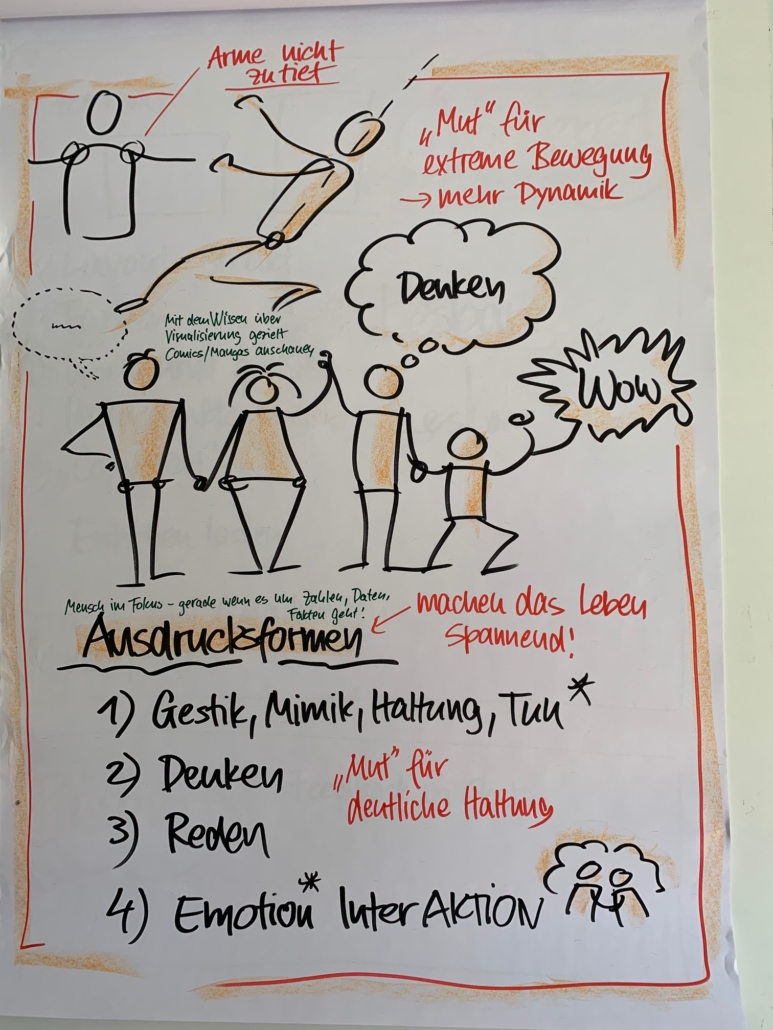 Arme nicht
zu tief
„Mut“ für
extreme Bewegung
→ mehr Dynamik
Denken
Mit dem Wissen über
Visualisierung gezielt
Comics/Mangas anschauen
Wow
Mensch im Fokus – gerade wenn es um Zahlen, Daten,
Fakten geht!
Ausdrucksformen
machen das Leben
spannend!
1) Gestik, Mimik, Haltung, Tun*
2) Denken
„Mut“ für
deutliche Haltung
3) Reden
4) Emotion* InterAKTION